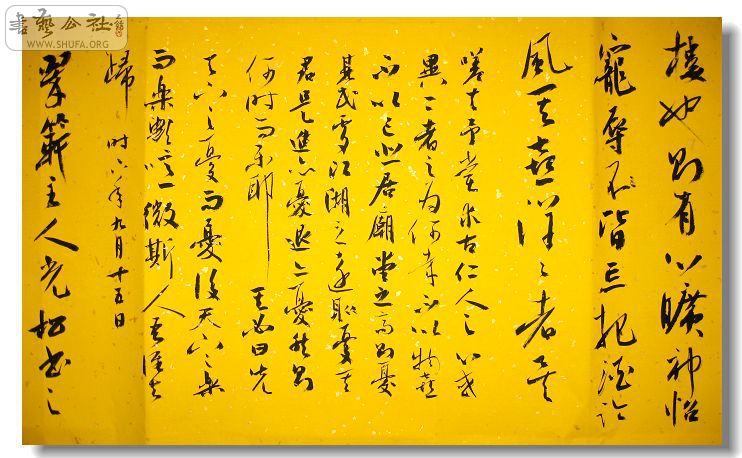 書藝公社
WWW.SHUFA.ORG
樓也則有心曠神怡
寵辱不皆忘把酒臨
風其喜洋洋者矣
嗟夫予嘗求古仁人之心或
異二者之為何哉不以物喜
不以己悲居廟堂之高則憂
其民處江湖之遠則憂其
君是進亦憂退亦憂然則
何時而樂耶 其必曰先
天下之憂而憂後天下之樂
而樂歟噫微斯人吾誰與
歸 时六年九月十五日
主人光松书之